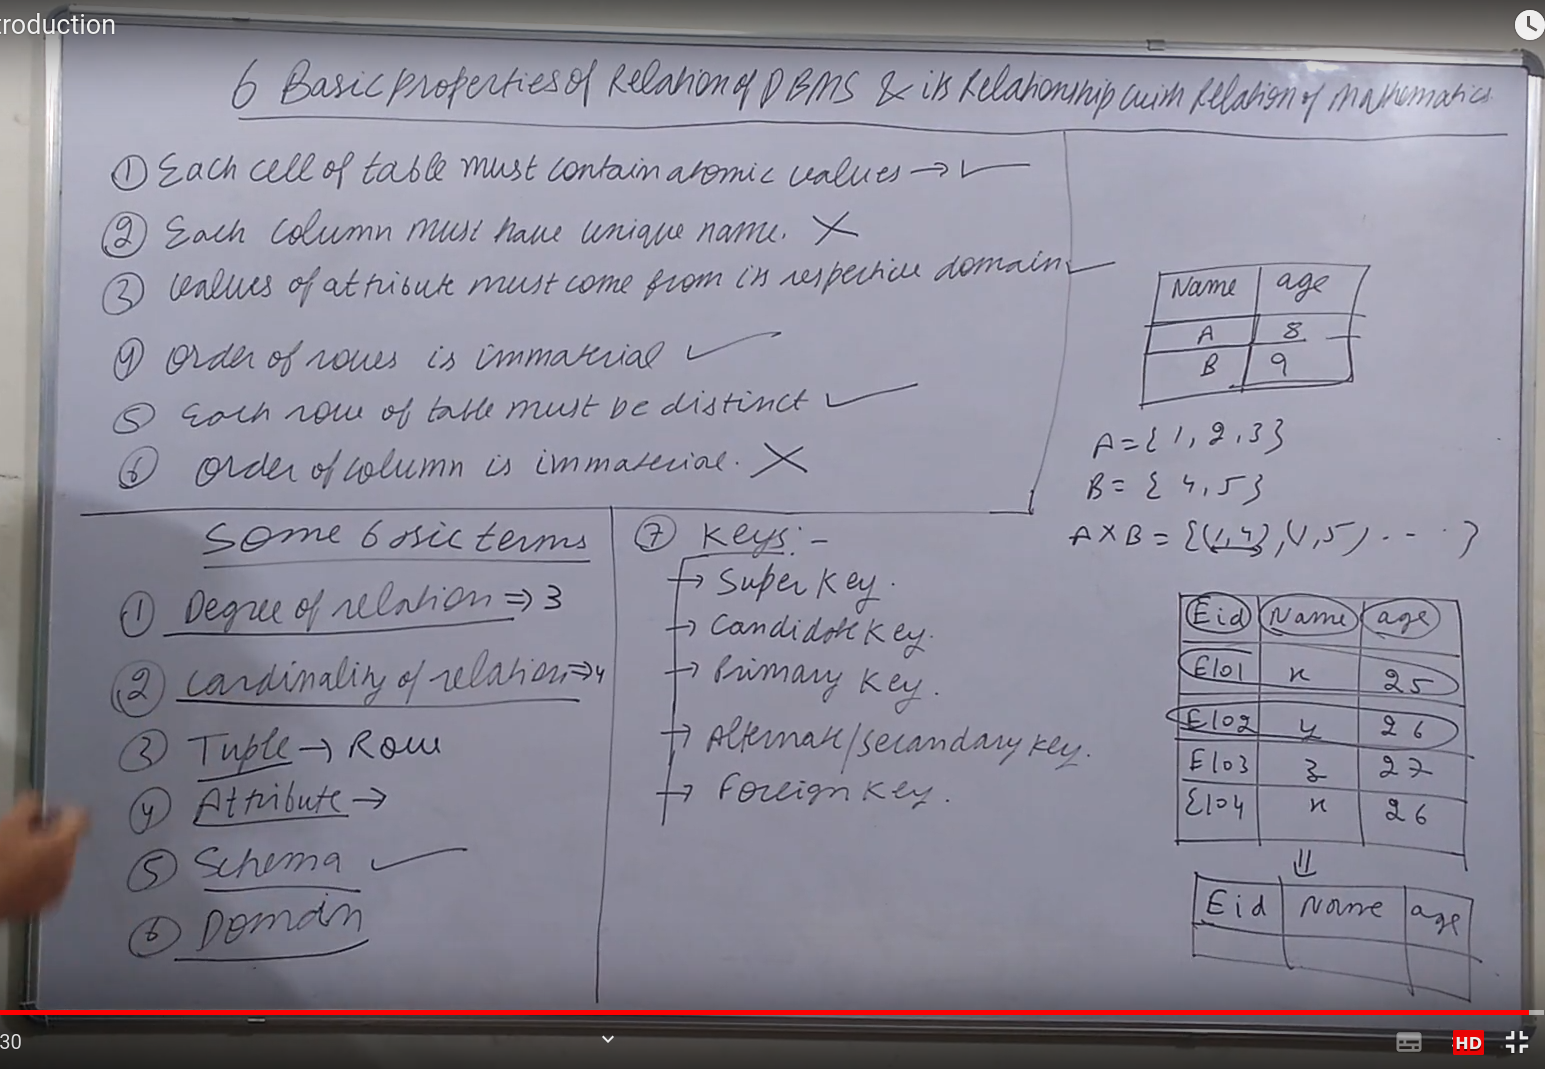 troduction
6 Basic properties of Relation of DBMS & its Relationship with Relation of Mathematics
① Each cell of table must contain atomic values → ✓
② Each column must have unique name. ✗
③ Values of attribute must come from its respective domain ✓
④ Order of rows is immaterial ✓
⑤ Each row of table must be distinct ✓
⑥ Order of column is immaterial. ✗
Name age
A 8
B 9
A = { 1, 2, 3 }
B = { 4, 5 }
A X B = {(1, 4), (1, 5) . - - }
Some basic terms
① Degree of relation => 3
② Cardinality of relation => 4
③ Tuple → Row
④ Attribute →
⑤ Schema ✓
⑥ Domain
⑦ Keys: -
→ Super Key.
→ Candidate Key.
→ Primary Key.
→ Alternate/Secandary Key.
→ Foreign Key.
Eid Name age
E101 x 25
E102 y 26
E103 z 27
E104 x 26
⇓
Eid Name age
30
HD